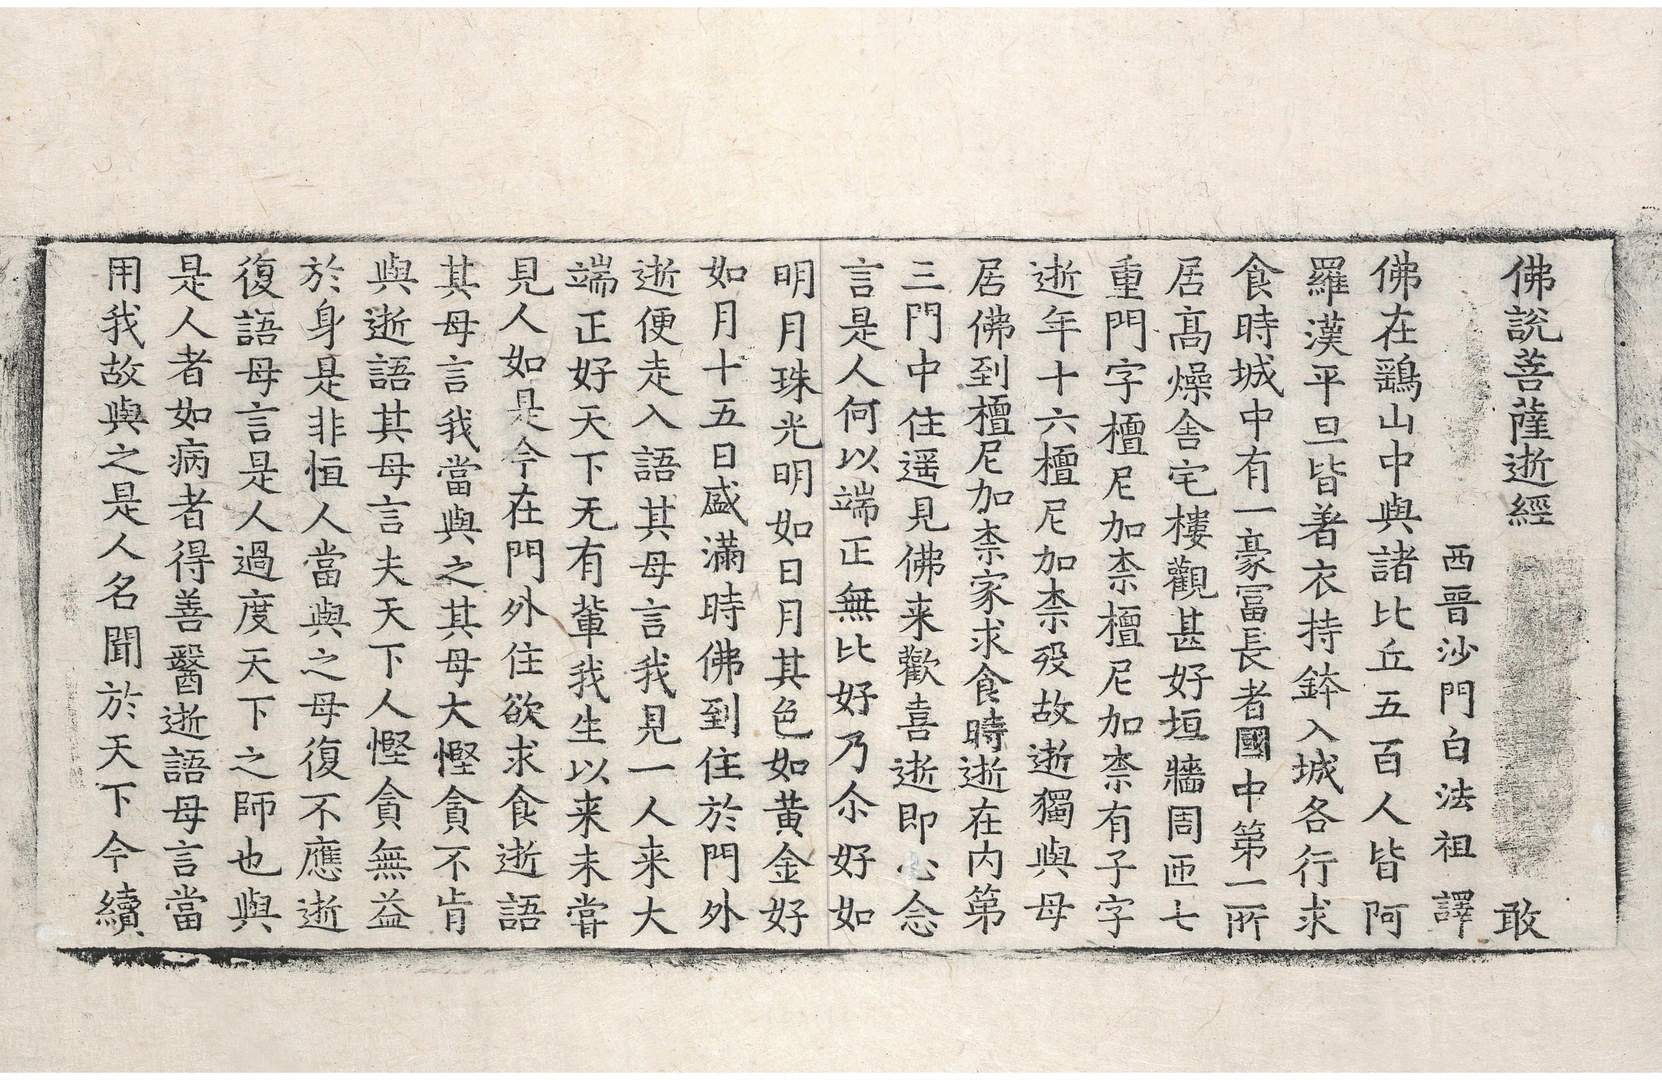 佛說菩薩逝經 敢
西晉沙門白法祖 譯
佛在鷄山中與諸比丘五百人皆阿
羅漢平旦皆著衣持鉢入城各行求
食時城中有一豪冨長者國中第一所
居髙燥舍宅樓觀甚好垣牆周匝七
重門字檀尼加柰檀尼加柰有子字
逝年十六檀尼加柰歿故逝獨與母
居佛到檀尼加柰家求食時逝在内第
三門中住遥見佛来歡喜逝即心念
言是人何以端正無比好乃尒好如
明月珠光明如日月其色如黄金好
如月十五日盛滿時佛到住於門外
逝便走入語其母言我見一人来大
端正好天下无有輩我生以来未甞
見人如是今在門外住欲求食逝語
其母言我當與之其母大慳貪不肯
與逝語其母言夫天下人慳貪無益
於身是非恒人當與之母復不應逝
復語母言是人過度天下之師也與
是人者如病者得善醫逝語母言當
用我故與之是人名聞於天下今續